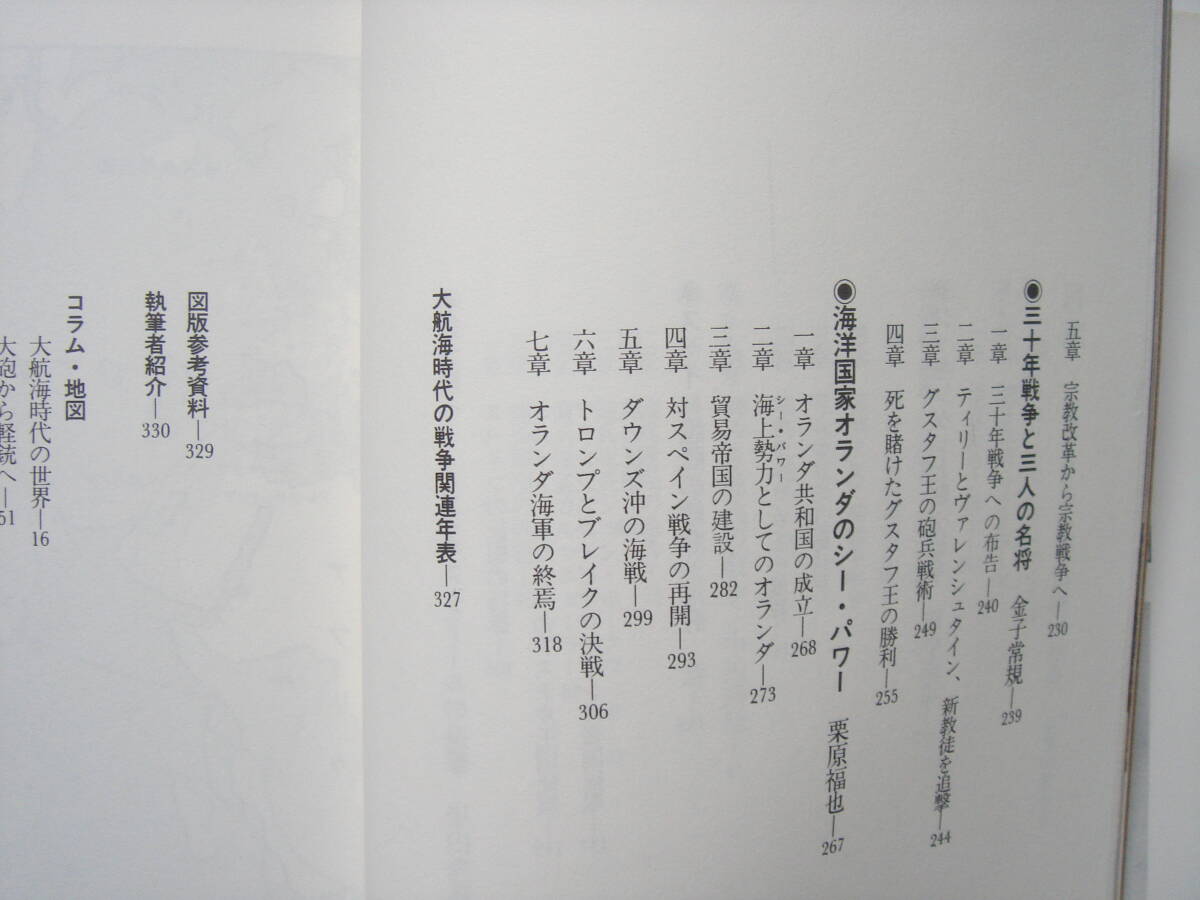 五章　宗教改革から宗教戦争へ—230
◉三十年戦争と三人の名将　金子常規—239
一章　三十年戦争への布告—240
二章　ティリーとヴァレンシュタイン、新教徒を追撃—244
三章　グスタフ王の砲兵戦術—249
四章　死を賭けたグスタフ王の勝利—255
◉海洋国家オランダのシー・パワー　栗原福也—267
一章　オランダ共和国の成立—268
二章　海上勢力としてのオランダ—273
シー・パワー
三章　貿易帝国の建設—282
四章　対スペイン戦争の再開—293
五章　ダウンズ沖の海戦—299
六章　トロンプとブレイクの決戦—306
七章　オランダ海軍の終焉—318
大航海時代の戦争関連年表—327
図版参考資料—329
執筆者紹介—330
コラム・地図
大航海時代の世界—16
大砲から軽銃へ—51